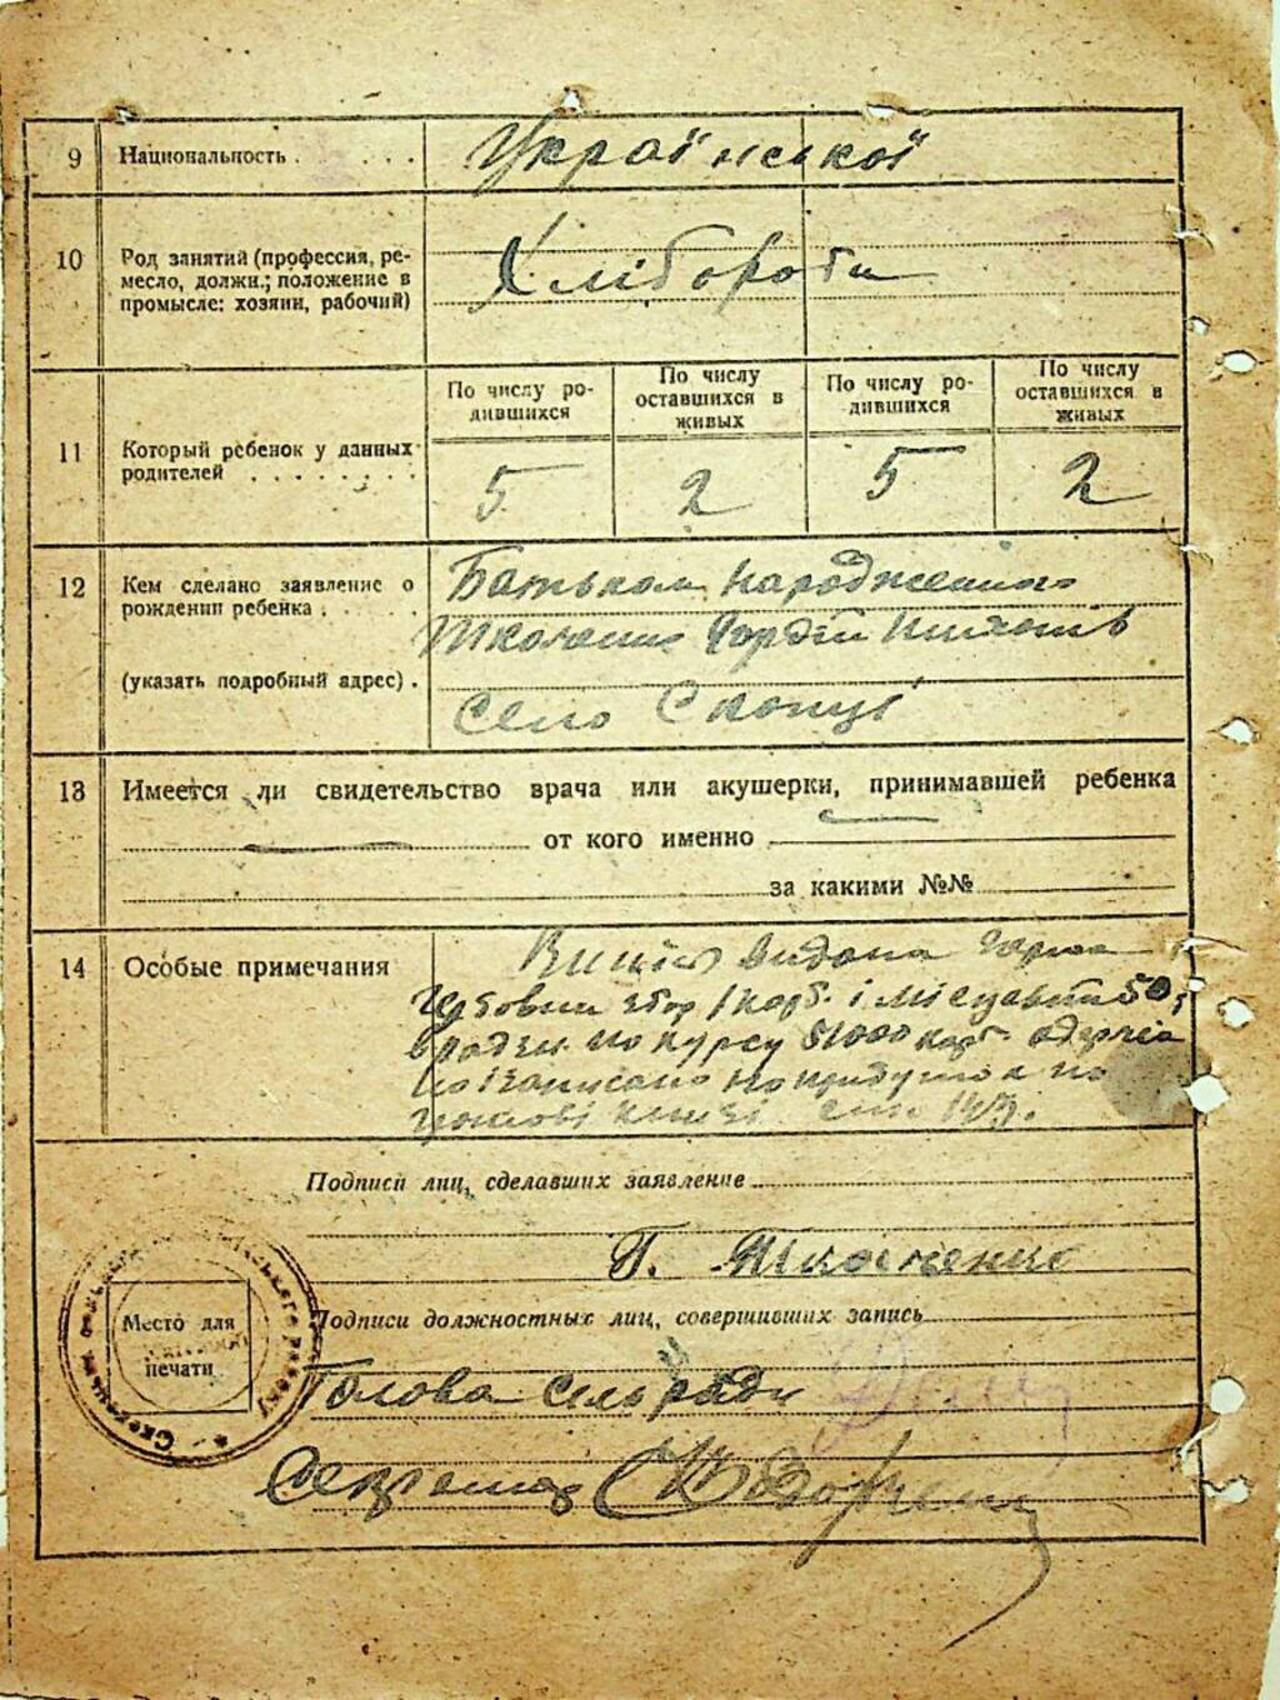 9 Национальность . . . . . Української
10 Род занятий (профессия, ре-
месло, должн.; положение в
промысле: хозяин, рабочий)
Хлібороби
11 Который ребенок у данных
родителей . . . . . . . .
По числу ро-
дившихся
По числу
оставшихся в
живых
По числу ро-
дившихся
По числу
оставшихся в
живых
5 2 5 2
12 Кем сделано заявление о
рождении ребенка . . . . .
(указать подробный адрес) .
Батьком народженного
Ткаченко Гордій
село Скопці
13 Имеется ли свидетельство врача или акушерки, принимавшей ребенка
от кого именно
за какими №№
14 Особые примечания
видана
збор 1 карб. і місцевий 50
по курсу 51000 карб.
записано по
книзі
Подписи лиц, сделавших заявление
Г. Ткаченко
Место для
печати
Подписи должностных лиц, совершивших запись
Голова сельради
Секретар